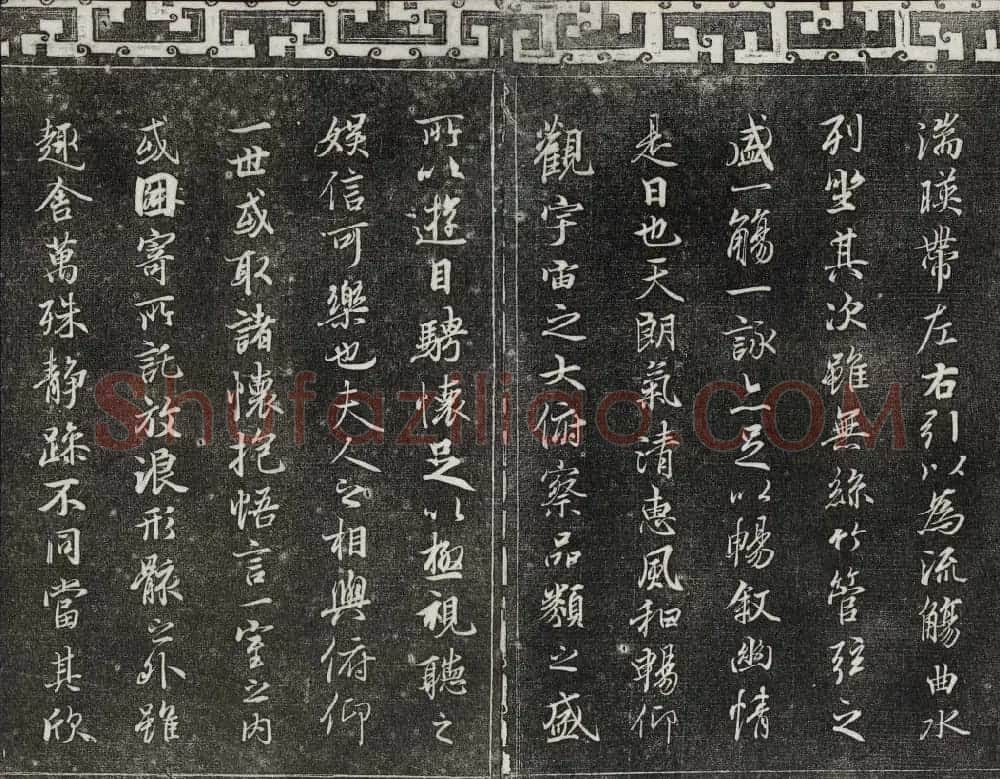 湍暎帶左右引以為流觴曲水
列坐其次雖無絲竹管弦之
盛一觴一詠亦足以暢敘幽情
是日也天朗氣清惠風和暢仰
觀宇宙之大俯察品類之盛
所以遊目騁懷足以極視聽之
娛信可樂也夫人之相與俯仰
一世或取諸懷抱悟言一室之內
或因寄所託放浪形骸之外雖
趣舍萬殊靜躁不同當其欣
Shufaziliao.COM